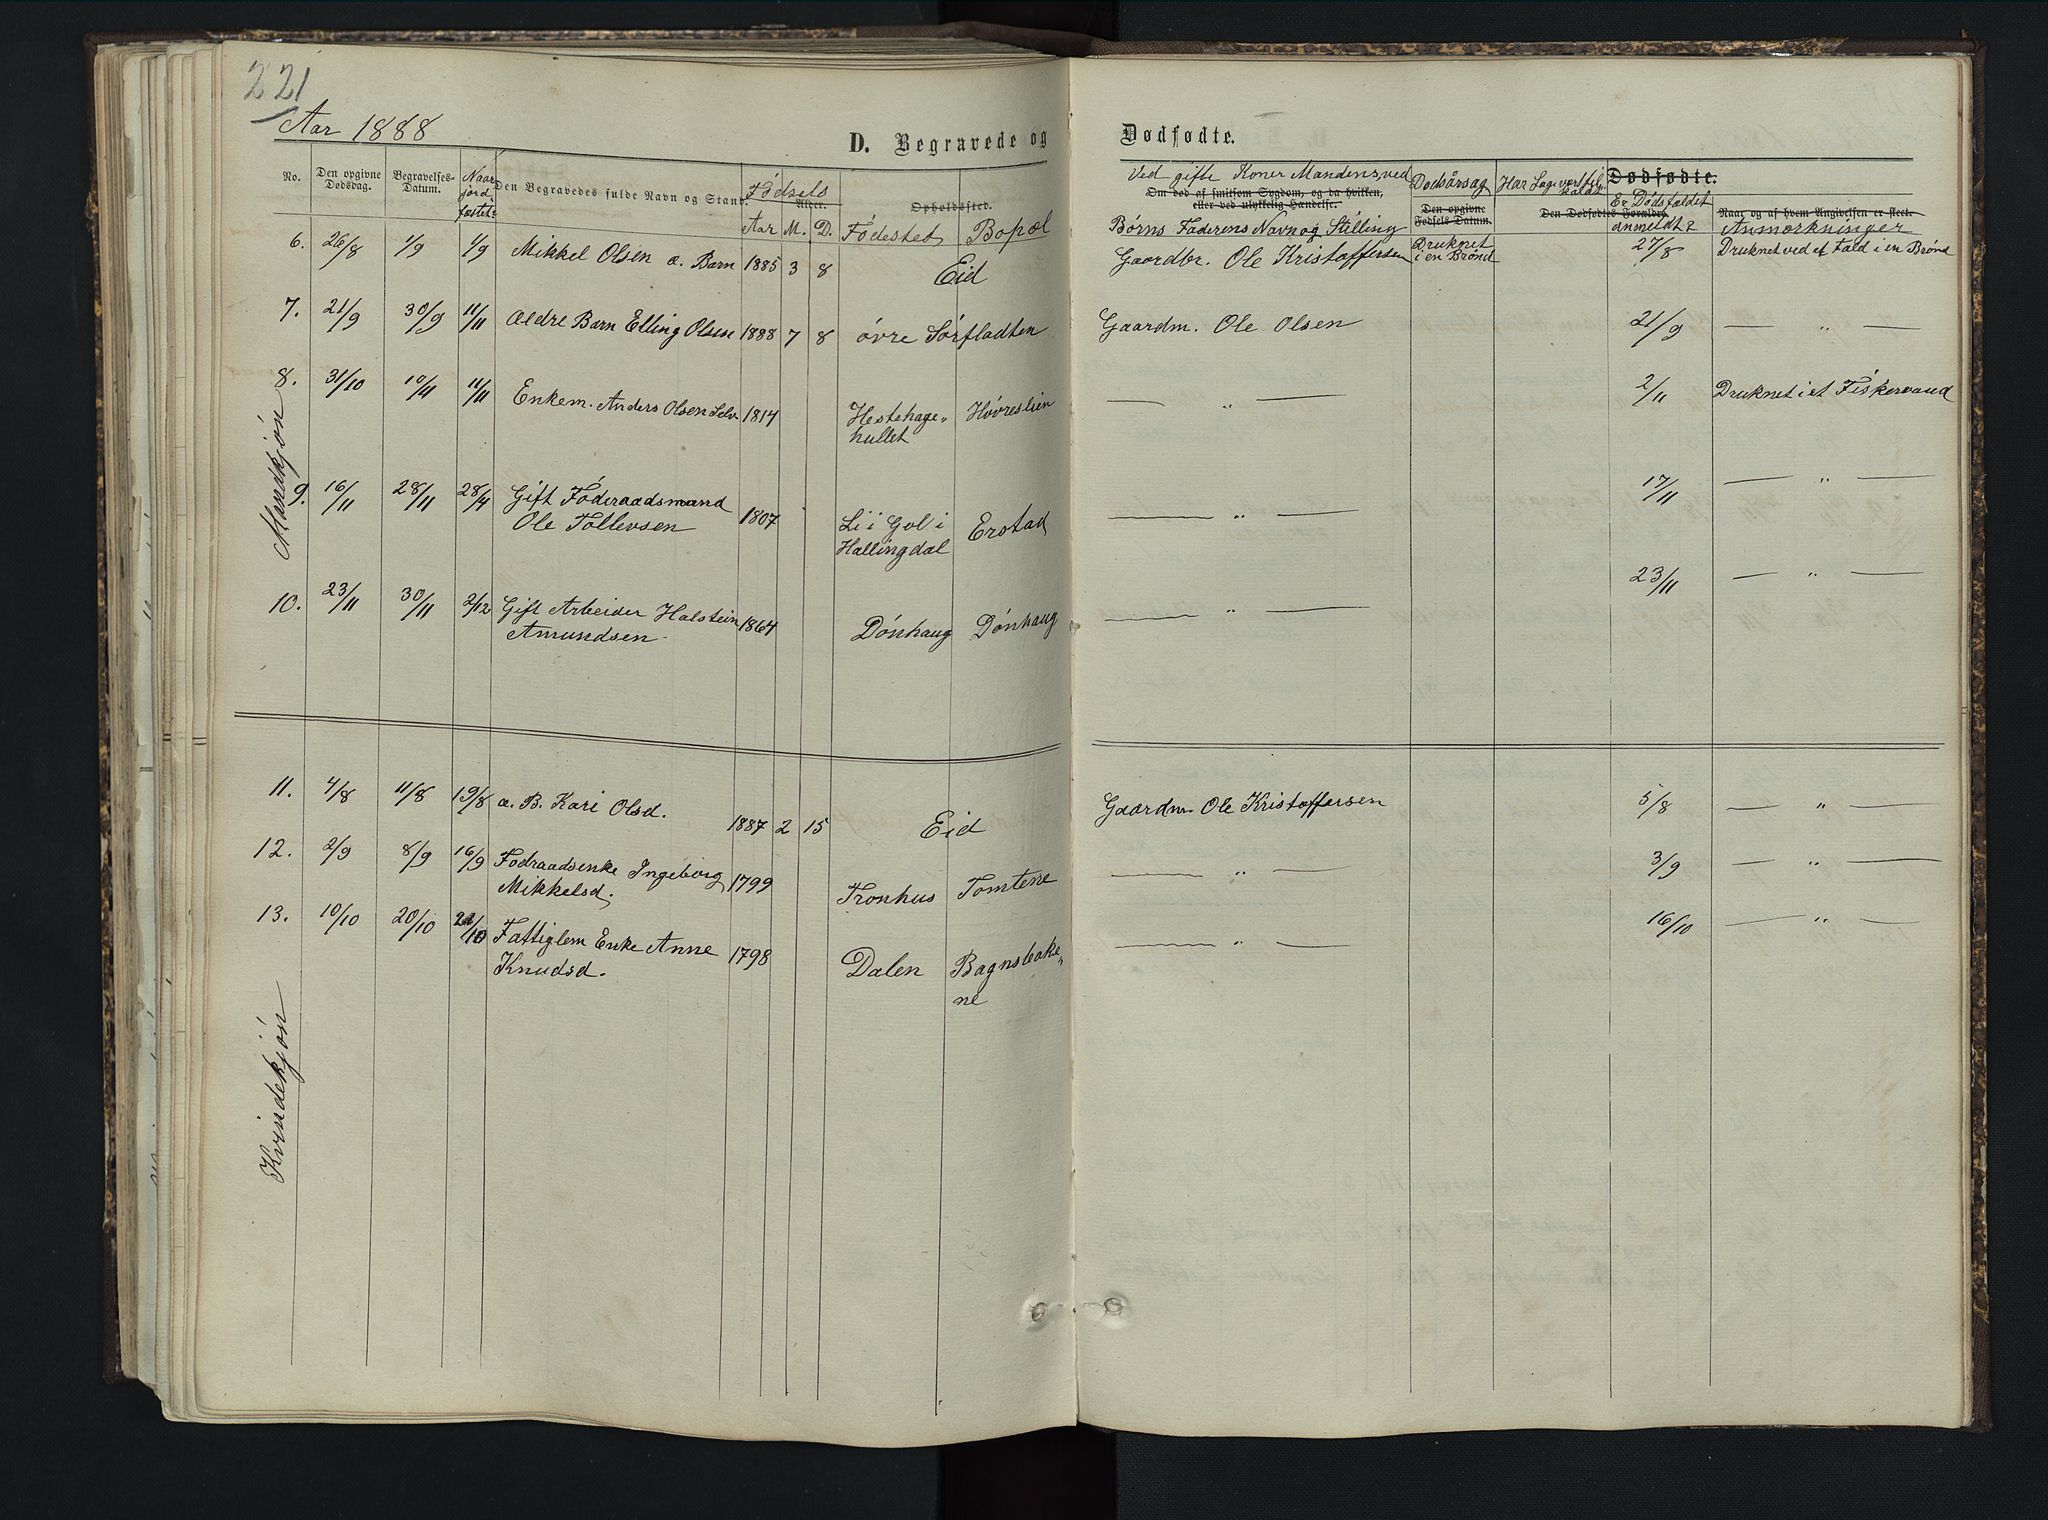 221
Aar 1888
D. Begravede og Dødfødte.
No. Den opgivne Dødsdag. Begravelses-Datum. Naar jordfæstet? Den Begravedes fulde Navn og Stand. Fødsels Alder. Aar M. D. Opholdssted. Fødested Bopæl
Ved gifte Koner Mandens, ved Børns Faderens Navn og Stilling
Om død af smitsom Sygdom, og da hvilken, eller ved ulykkelig Hændelse.
Dødsårsag Den opgivne Fødsels Datum.
Har Læge været tilkaldt Den Dødfødtes Forældre.
Dødfødte.
Er Dødsfaldet anmeldt?
Naar og af hvem Angivelsen er skeet.
Anmærkninger
Mandkjøn
6. 26/8 1/9 1/9 Mikkel Olsen æ. Barn 1885 3 8 Eid Gaardbr. Ole Kristoffersen Druknet i en Brønd 27/8 Druknet ved et Fald i en Brønd
7. 21/9 30/9 11/11 Ældre Barn Elling Olsen 1888 7 8 øvre Sørfladten Gaardm. Ole Olsen 21/9 — " —
8. 31/10 10/11 11/11 Enkem. Anders Olsen Selv. 1814 Hestehage„ Høvreslien — " — 2/11 Druknet i et Fiskervand
hullet
9. 16/11 28/11 28/4 Gift Føderaadsmand 1807 Li i Gol i Erstad — " — 17/11 — " —
Ole Tollevsen Hallingdal
10. 23/11 30/11 2/12 Gift Arbeider Halstein 1864 Dønhaug Dønhaug — " — 23/11 — " —
Amundsen
11. 4/8 11/8 19/8 æ. B. Kari Olsd. 1887 2 15 Eid Gaardm. Ole Kristoffersen 5/8 — " —
12. 2/9 8/9 16/9 Fødraadsenke Ingeborg 1799 Tronhus Tomtene — " — 3/9 — " —
Mikkelsd.
13. 10/10 20/10 21/10 Fattiglem Enke Anne 1798 Dalen Bagnsbake„ — " — 16/10 — " —
Knudsd. ne
Kvindekjøn